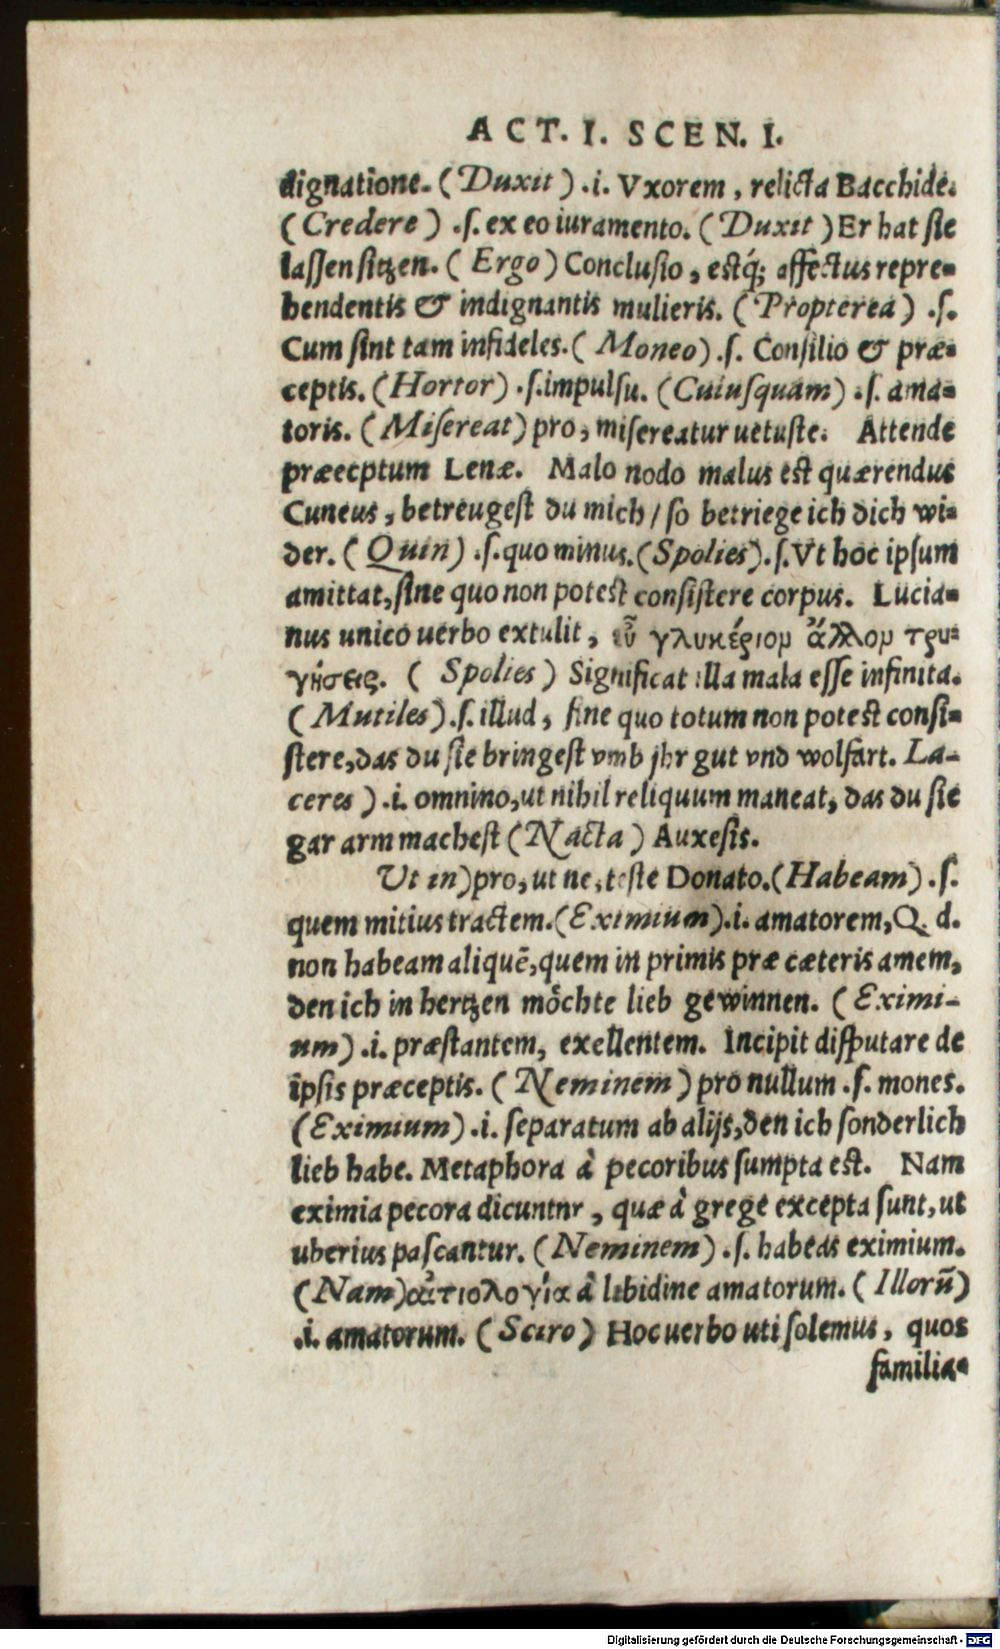 ACT. I. SCEN. I.
dignatione. (Duxit) .i. Vxorem, relicta Bacchide.
(Credere) .ſ. ex eo iuramento. (Duxit) Er hat ſie
laſſen ſitzen. (Ergo) Concluſio, eſtq́; affectus repre=
hendentis & indignantis mulieris. (Propterea) .ſ.
Cum ſint tam infideles. (Moneo) .ſ. Conſilio & præ=
ceptis. (Hortor) .ſ. impulſu. (Cuiuſquam) .ſ. ama=
toris. (Miſereat) pro, miſereatur uetuſte. Attende
præecptum Lenæ. Malo nodo malus eſt quærendus
Cuneus, betreugeſt du mich / ſo betriege ich dich wi=
der. (Quin) .ſ. quo minus. (Spolies) .ſ. Vt hoc ipſum
amittat, ſine quo non poteſt conſiſtere corpus. Lucia=
nus unico uerbo extulit, εὖ γλυκέριον ἄλλον τρυ=
γήσεις. (Spolies) Significat illa mala eſſe infinita.
(Mutiles) .ſ. illud, ſine quo totum non poteſt conſi=
ſtere, das du ſie bringeſt vmb jhr gut vnd wolfart. La-
ceres) .i. omnino, ut nihil reliquum maneat, das du ſie
gar arm macheſt (Nacta) Auxeſis.
Ut in) pro, ut ne, teſte Donato. (Habeam) .ſ.
quem mitius tractem. (Eximium) .i. amatorem, Q. d.
non habeam aliquē, quem in primis præ cæteris amem,
den ich in hertzen möchte lieb gewinnen. (Eximi-
um) .i. præſtantem, exellentem. Incipit diſputare de
ipſis præceptis. (Neminem) pro nullum .ſ. mones.
(Eximium) .i. ſeparatum ab alijs, den ich ſonderlich
lieb habe. Metaphora à pecoribus ſumpta eſt. Nam
eximia pecora dicuntnr, quæ à grege excepta ſunt, ut
uberius paſcantur. (Neminem) .ſ. habeas eximium.
(Nam) αἰτιολογία à libidine amatorum. (Illorū)
.i. amatorum. (Scito) Hoc uerbo uti ſolemus, quos
familia=
Digitalisierung gefördert durch die Deutsche Forschungsgemeinschaft - DFG